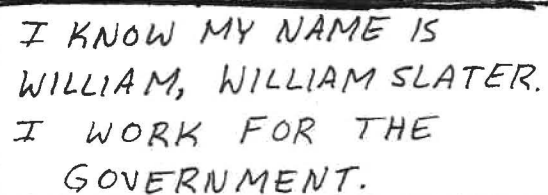 I KNOW MY NAME IS
WILLIAM, WILLIAM SLATER.
I WORK FOR THE
GOVERNMENT.